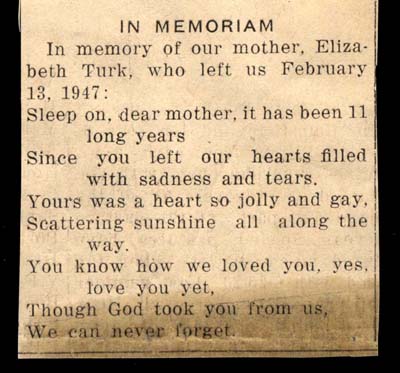 IN MEMORIAM
In memory of our mother, Eliza-
beth Turk, who left us February
13, 1947:
Sleep on, dear mother, it has been 11
long years
Since you left our hearts filled
with sadness and tears.
Yours was a heart so jolly and gay,
Scattering sunshine all along the
way.
You know how we loved you, yes,
love you yet,
Though God took you from us,
We can never forget.